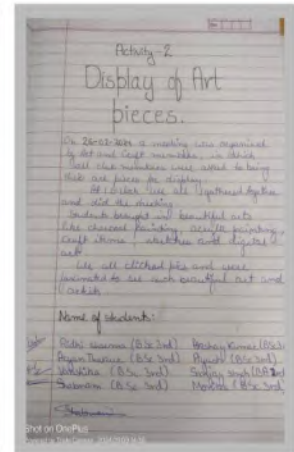 Activity-2
Display of Art
pieces.
On 26-02-2024 a meeting was organised
by Art and Craft members, in which
all club members were asked to bring
their art pieces for display.
At 1 o'clock we all gathered together
and did the meeting
Students brought in beautiful arts
like charcoal painting, acrylic painting,
Craft items, sketches and digital
arts
We all clicked pics and were
fascinated to see such beautiful art and
artists
Name of students:
(BSc 3rd) Kumar (BSc 3rd)
(BSc 3rd) Piyush (BSc 3rd)
(BSc 3rd) Sanjay Singh (BA
Shabnam (BSc 3rd) (BSc 3rd)
Shot on OnePlus